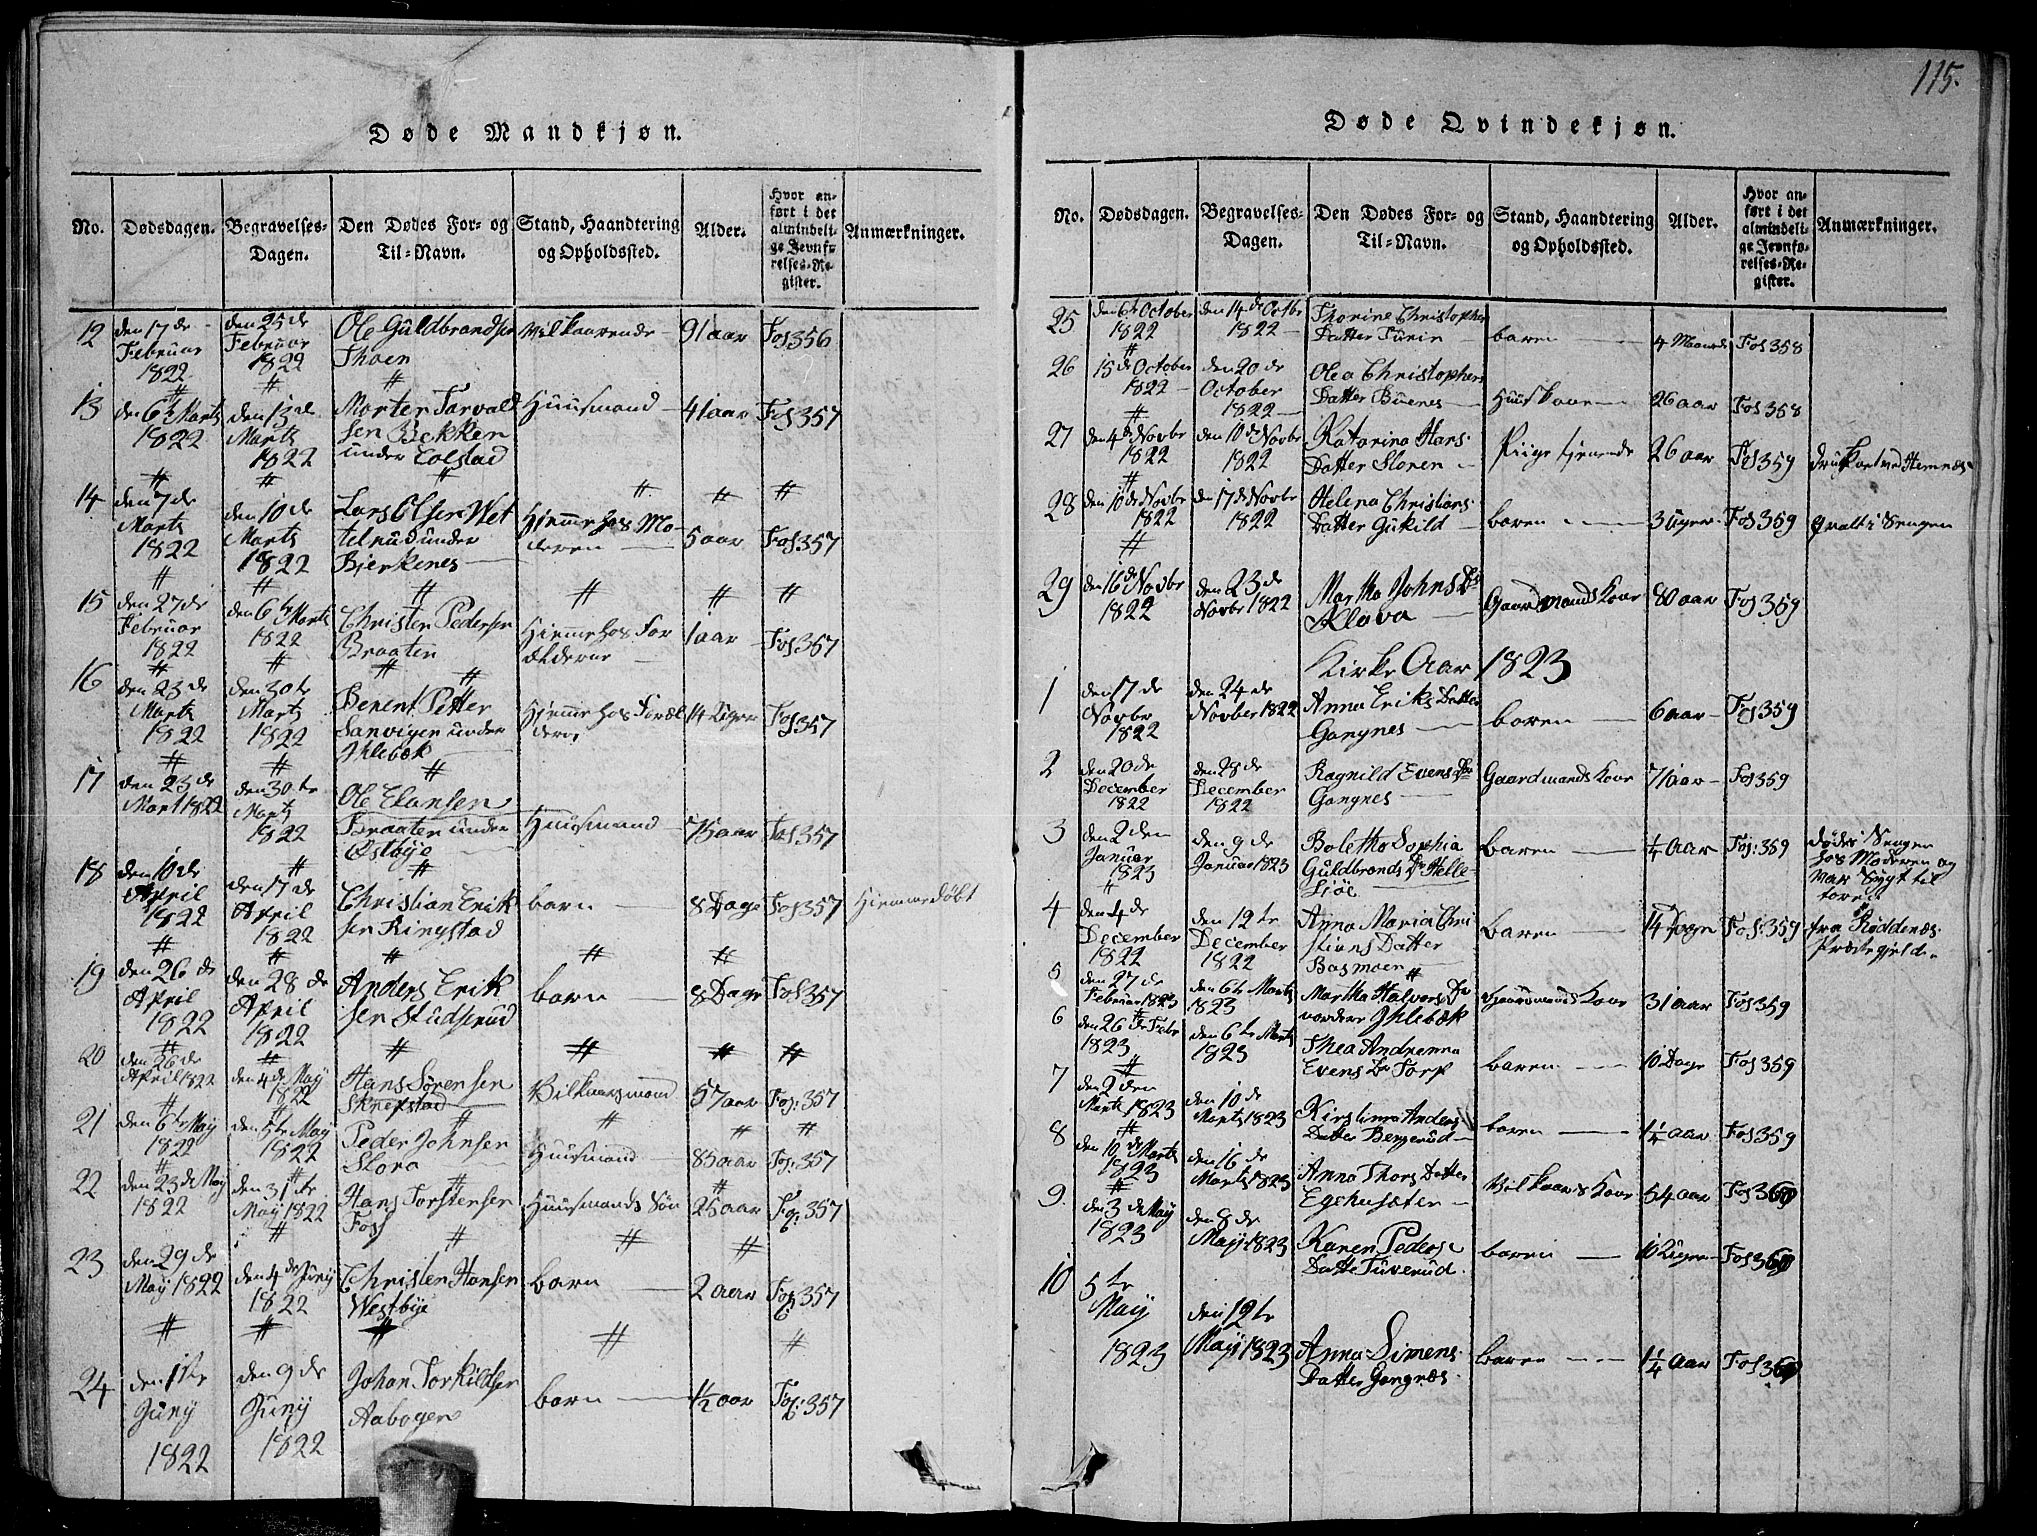 115.
Døde Mandkjøn.
No. Dødsdagen. Begravelses-Dagen. Den Dødes For- og Til-Navn. Stand, Haandtering og Opholdssted. Alder. Hvor anført i det almindelige Jevnførelses-Register. Anmærkninger.
12 den 17 de Februar 1822 den 25 de Februar 1822 Ole Guldbrandsen Thoen Vilkaarende 91 aar Fol 356
13 den 6te Marts 1822 den 13 de Marts 1822 Morten Tarvaldsen Bekken under Colstad Huusmand 41 aar Fol 357
14 den 7 de Marts 1822 den 10 de Marts 1822 Lars Olsen Wettilrud under Bjerkenes Hjemme hos Moderen 5 aar Fol 357
15 den 27 de Februar 1822 den 6te Marts 1822 Christen Pedersen Braaten Hjemme hos Forældrene 1 aar Fol 357
16 den 23 de Marts 1822 den 30te Marts 1822 Berent Petter Sanvigen under Ihlebæk Hjemme hos Foræl 14 Uger Fol 357
17 den 23 de Mart 1822 den 30te Marts 1822 Ole Elansen Braaten under Østbye Huusmand 75 aar Fol 357
18 den 10 de April 1822 den 17 de April 1822 Christian Eriksen Ringstad barn 8 Dage Fol 357 Hjemmedøbt
19 den 26 de April 1822 den 28 de April 1822 Anders Eriksen Studserud barn 8 Dage Fol 357
20 den 26 de April 1822 den 4 de May 1822 Hans Sørensen Skrepstad Vilkaarsmand 57 aar Fol: 357
21 den 6te May 1822 den 5te May 1822 Peder Johnsen Slora Huusmand 85 aar Fol: 357
22 den 23 de May 1822 den 31te May 1822 Hans Torstensen Foss Huusmands Søn 25 aar Fol: 357
23 den 29 de May 1822 den 4 de Juny 1822 Christen Hansen Westbye barn 2 aar Fol: 357
24 den 1ste Juny 1822 den 9 de Juny 1822 Johan Torkildsen Aabogen barn 1½ aar Fol: 357
Døde Qvindekjøn.
No. Dødsdagen. Begravelses-Dagen. Den Dødes For- og Til-Navn. Stand, Haandtering og Opholdssted. Alder. Hvor anført i det almindelige Jevnførelses-Register. Anmærkninger.
25 den 6te October 1822 den 14 de Octbr 1822 Thorine Christophers Datter Turin baren 4 Maander Fol 358
26 15 de October 1822 den 20 de October 1822 Olea Christophers Datter Buenes Huuskone 26 aar Fol 358
27 den 4de Novbr 1822 den 10 de Novbr 1822 Katarina Hans Datter Sloren Piige tjenende 26 aar Fol 359 Druknet ved Hemnæs
28 den 10 de Novbr 1822 den 17 de Novbr 1822 Helena Christians Datter Gukild baren 3 Uger Fol 359 qvalt i Sengen
29 den 16 de Novbr 1822 den 23 de Novbr 1822 Martha Johns Dr Kløva Gaardmands Kone 80 aar Fol 359
Kirke Aar 1823
1 den 17 de Novbr 1822 den 24 de Novber 1822 Anna Eriks Datter Gangnes baren 6 aar Fol 359
2 den 20 de December 1822 den 28 de December 1822 Ragnild Evens Dr Gangnes Gaardmands Kone 71 aar Fol 359
3 den 2 den Januar 1823 den 9 de Januar 1823 Boletta Sophia Guldbrands Dr Hellesjøe baren ¼ Aar Fol: 359 døde i Sengen hos Moderen og var Sygt til
4 den 4 de December 1822 den 12te December 1822 Anna Maria Christians Datter Basmoen baren 14 Fol: 359 fra Røddenæs Præstegjeld.
5 den 27 de Februar 1823 den 6te Marts 1823 Martha Halvors Dr nordere Ihlebæk Gaardmands Kone 31 aar Fol 359
6 den 26 de Febr 1823 den 6te Marts 1823 Thea Andrenna Evens Dr Torp baren 10 Dage Fol 359
7 den 2 den Marts 1823 den 10 de Marts 1823 Kirstinna Anders Datter Bergerud baren 1¼ aar Fol 359
8 den 10 de Marts 1823 den 16 de Marts 1823 Anna Thors Datter Egehusæter Vilkaars Kone 54 aar Fol 360
9. den 3 de May 1823 den 8 de May 1823 Karen Peders Datte Tuverud. baren 10 Uger Fol 360
10 5te May 1823 den 12te May 1823 Anna Simens Datter Gangnæs. baren 1¼ aar Fol 360